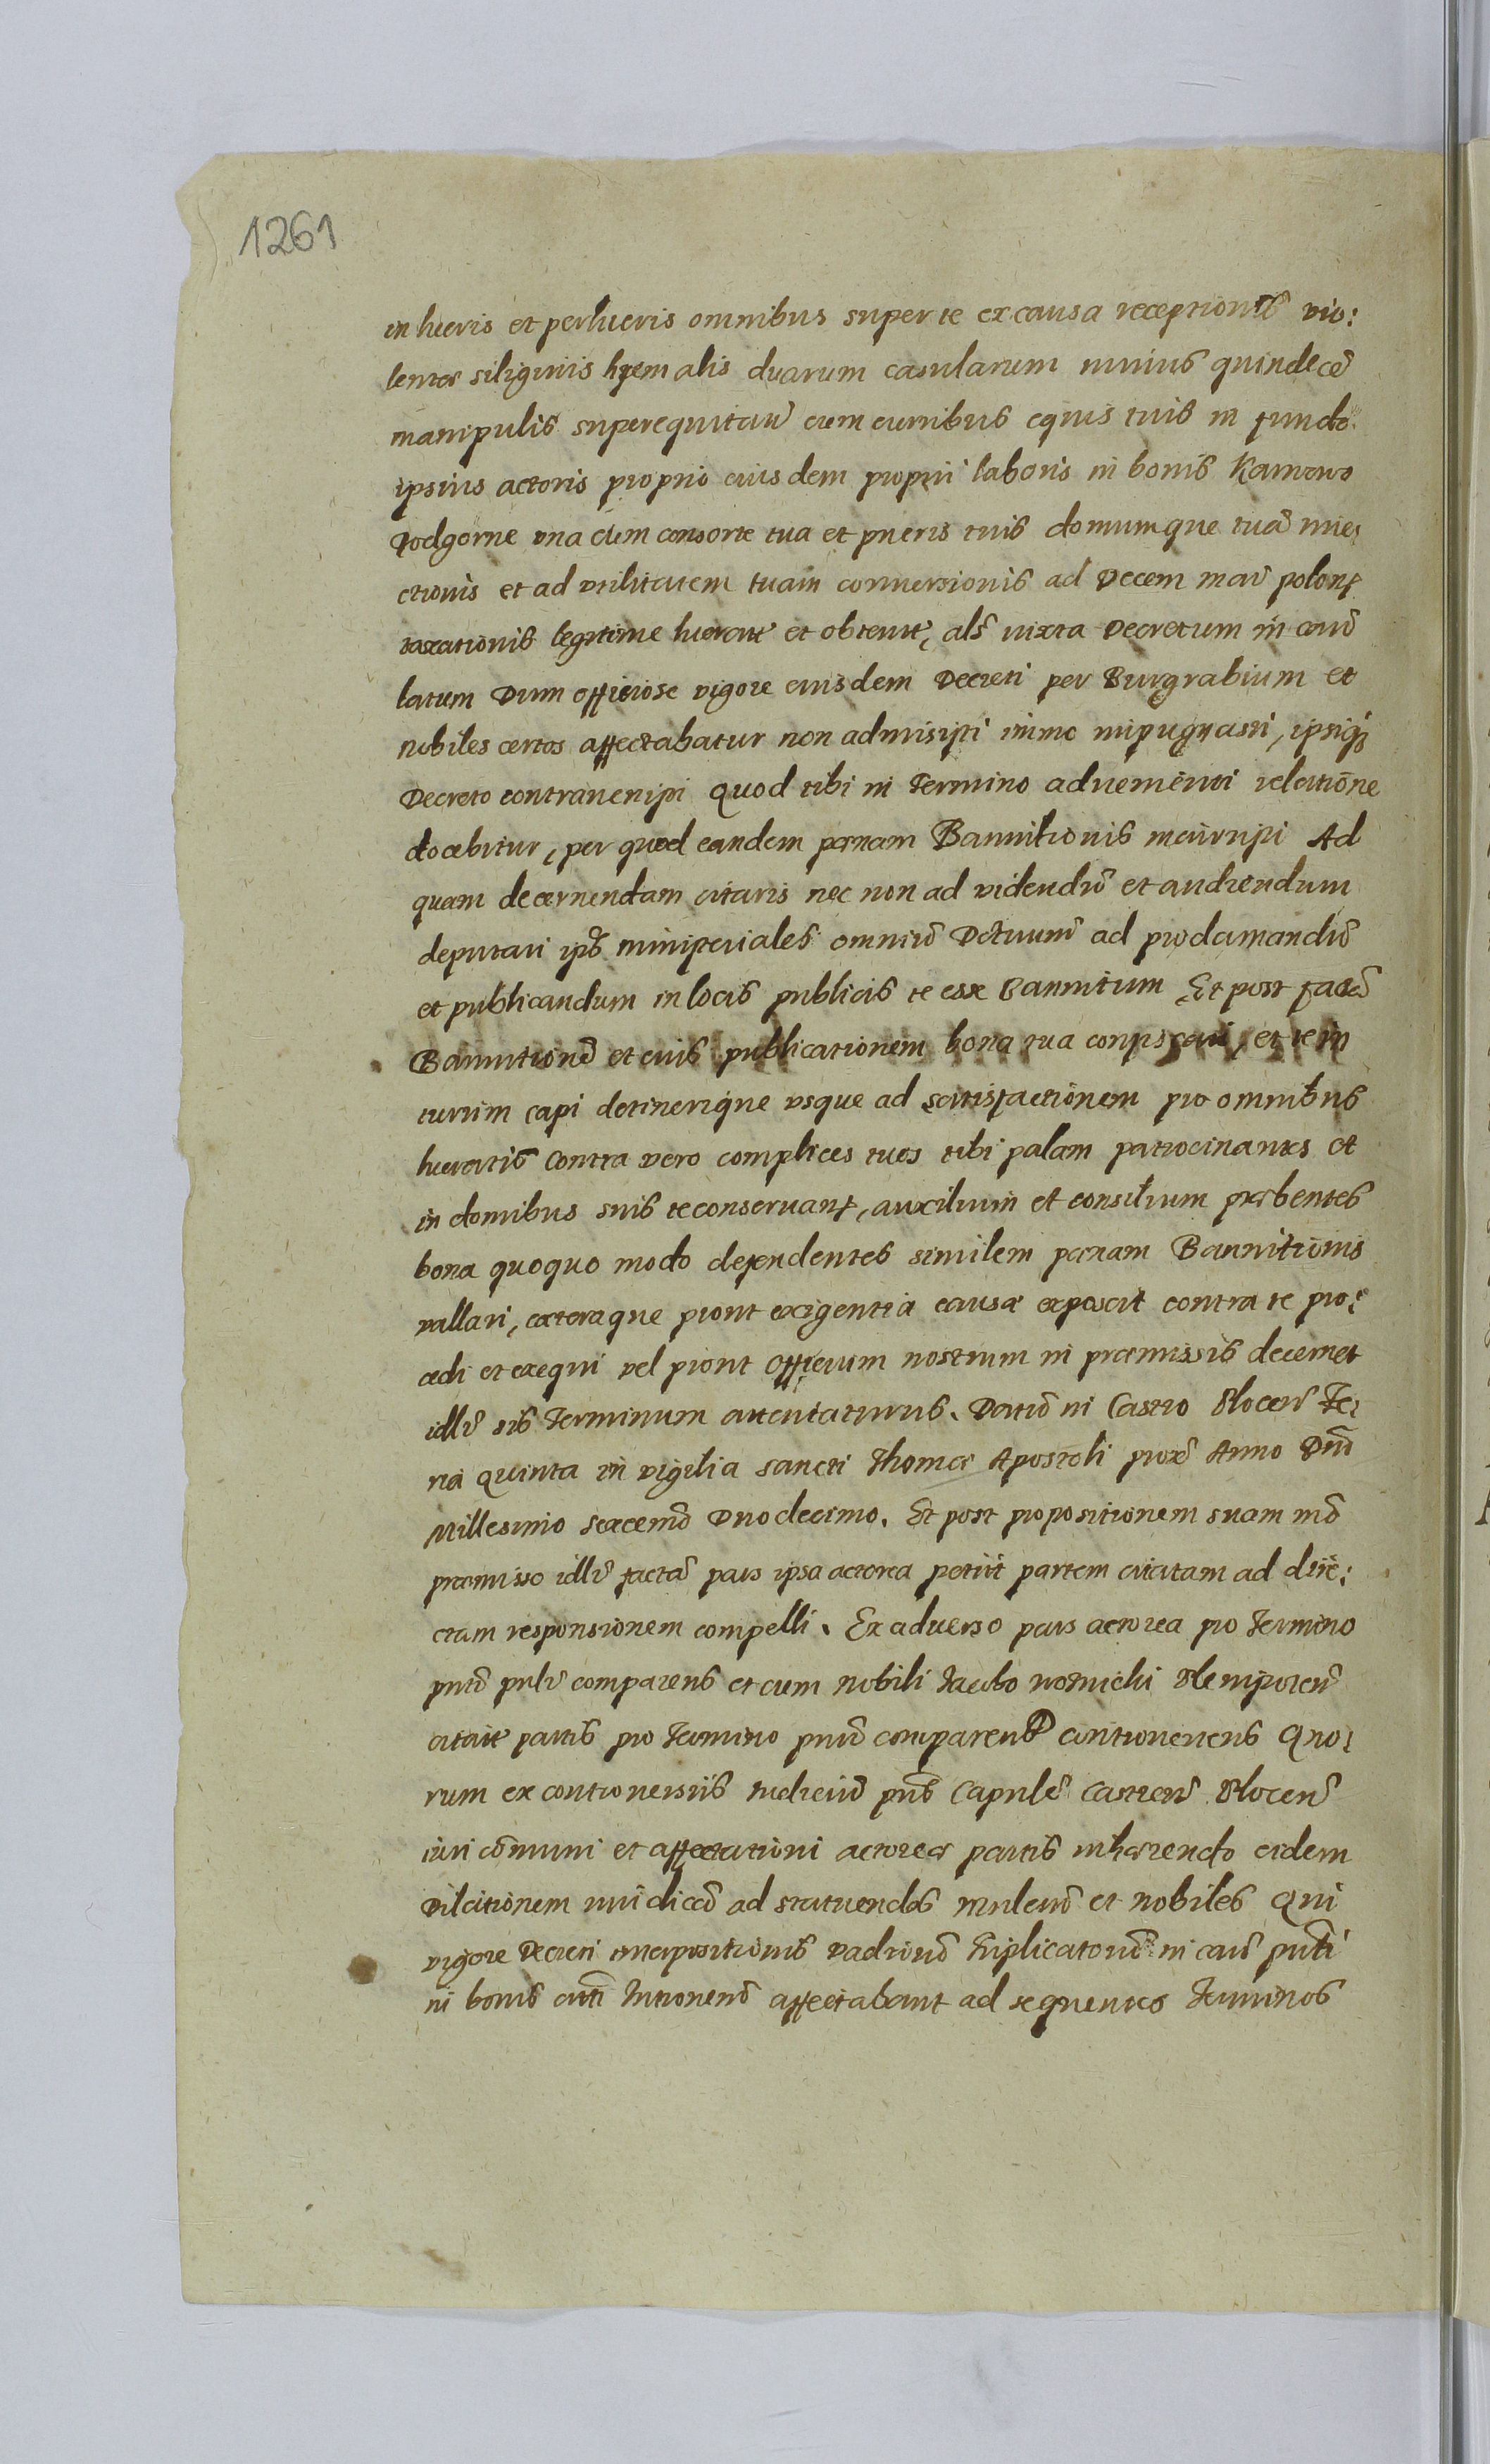 1261
in lucris et perlucris omnibus super te ex causa receptionis vio:
lentæ siliginis hyemalis duarum casularum minus quindecē
manipulis superequitaū cum curribus equis tuis in fundo
ipsius actoris proprio eiusdem proprii laboris in bonis Kamowo
Podgorne vna cum consorte tua et pueris tuis domumque tuā inie:
ctionis et ad vtilitatem tuam conuersionis ad Decem mar̄ polon̄
taxationis legitime lucratæ et obtentæ, als̄ iuxta Decretum in caūs
latum Dum officiose vigore eiusdem Decreti per Burgrabium et
nobiles certos affectabatur non admisisti immo inpugnasti, ipsiq3
Decreto contrauenisti quod tibi in Termino aduenienti relatione
docebitur, per quod eandem pœnam Bannitionis incurristi Ad
quam decernendam citaris nec non ad videndū et audiendum
deputari ips̄ ministeriales omniū Dctuum̄ ad proclamandū
et publicandum in locis publicis te esse Bannitum Et post factā
Bannitionē et eius publicationem bona tua confiscari, et te in
turrim capi detinerique vsque ad satisfactionem pro omnibus
lucratis Contra vero complices tuos tibi palam patrocinantes et
in domibus suis te conseruant, auxilium et consilium præbentes
bona quoquo modo defendentes similem pœnam Bannitionis
vallari, cæteraque prout exigentia causæ exposcit contra te pro:
cedi et exequi vel prout Officium nostrum in præmissis decernet
idlr̄ sis Terminum attentaturus. Datū in Castro Plocen̄ Fe:
ria quinta in vigilia sancti Thomæ Apostoli prox̄ Anno Dnī
Millesimo sexcentō Duodecimo. Et post propositionem suam mō
præmisso idlr̄ factā pars ipsa actorea petiit partem citatam ad dire:
ctam responsionem compelli. Ex aduerso pars actorea pro Termino
pntī pnlr̄ comparens et cum Nobili Iacobo Plenipoten̄
citatæ partis pro Termino pntī comparente controuertens Quo:
rum ex controuersiis Iudiciū pns̄ Capnlē Castren̄ Plocen̄
iuri cōmuni et affectationi actoreæ partis inhærendo eidem
Dilationem iuridicā ad statuendos Mnlem̄ et nobiles Qui
vigore Decreti interpositionis vadiorū triplicatorū in caūs pntī
in bonis cittī Intromen̄ affectabant ad sequentes Terminos